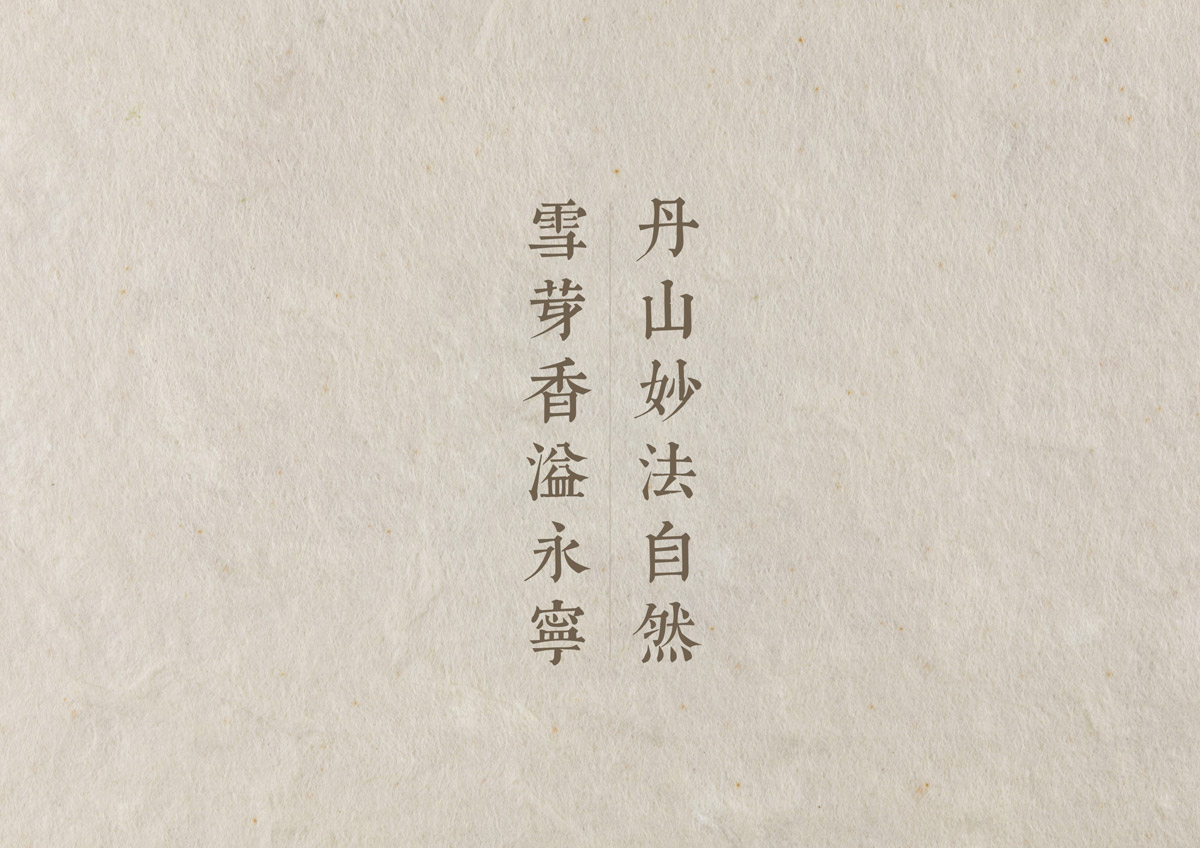 丹山妙法自然
雪芽香溢永寧